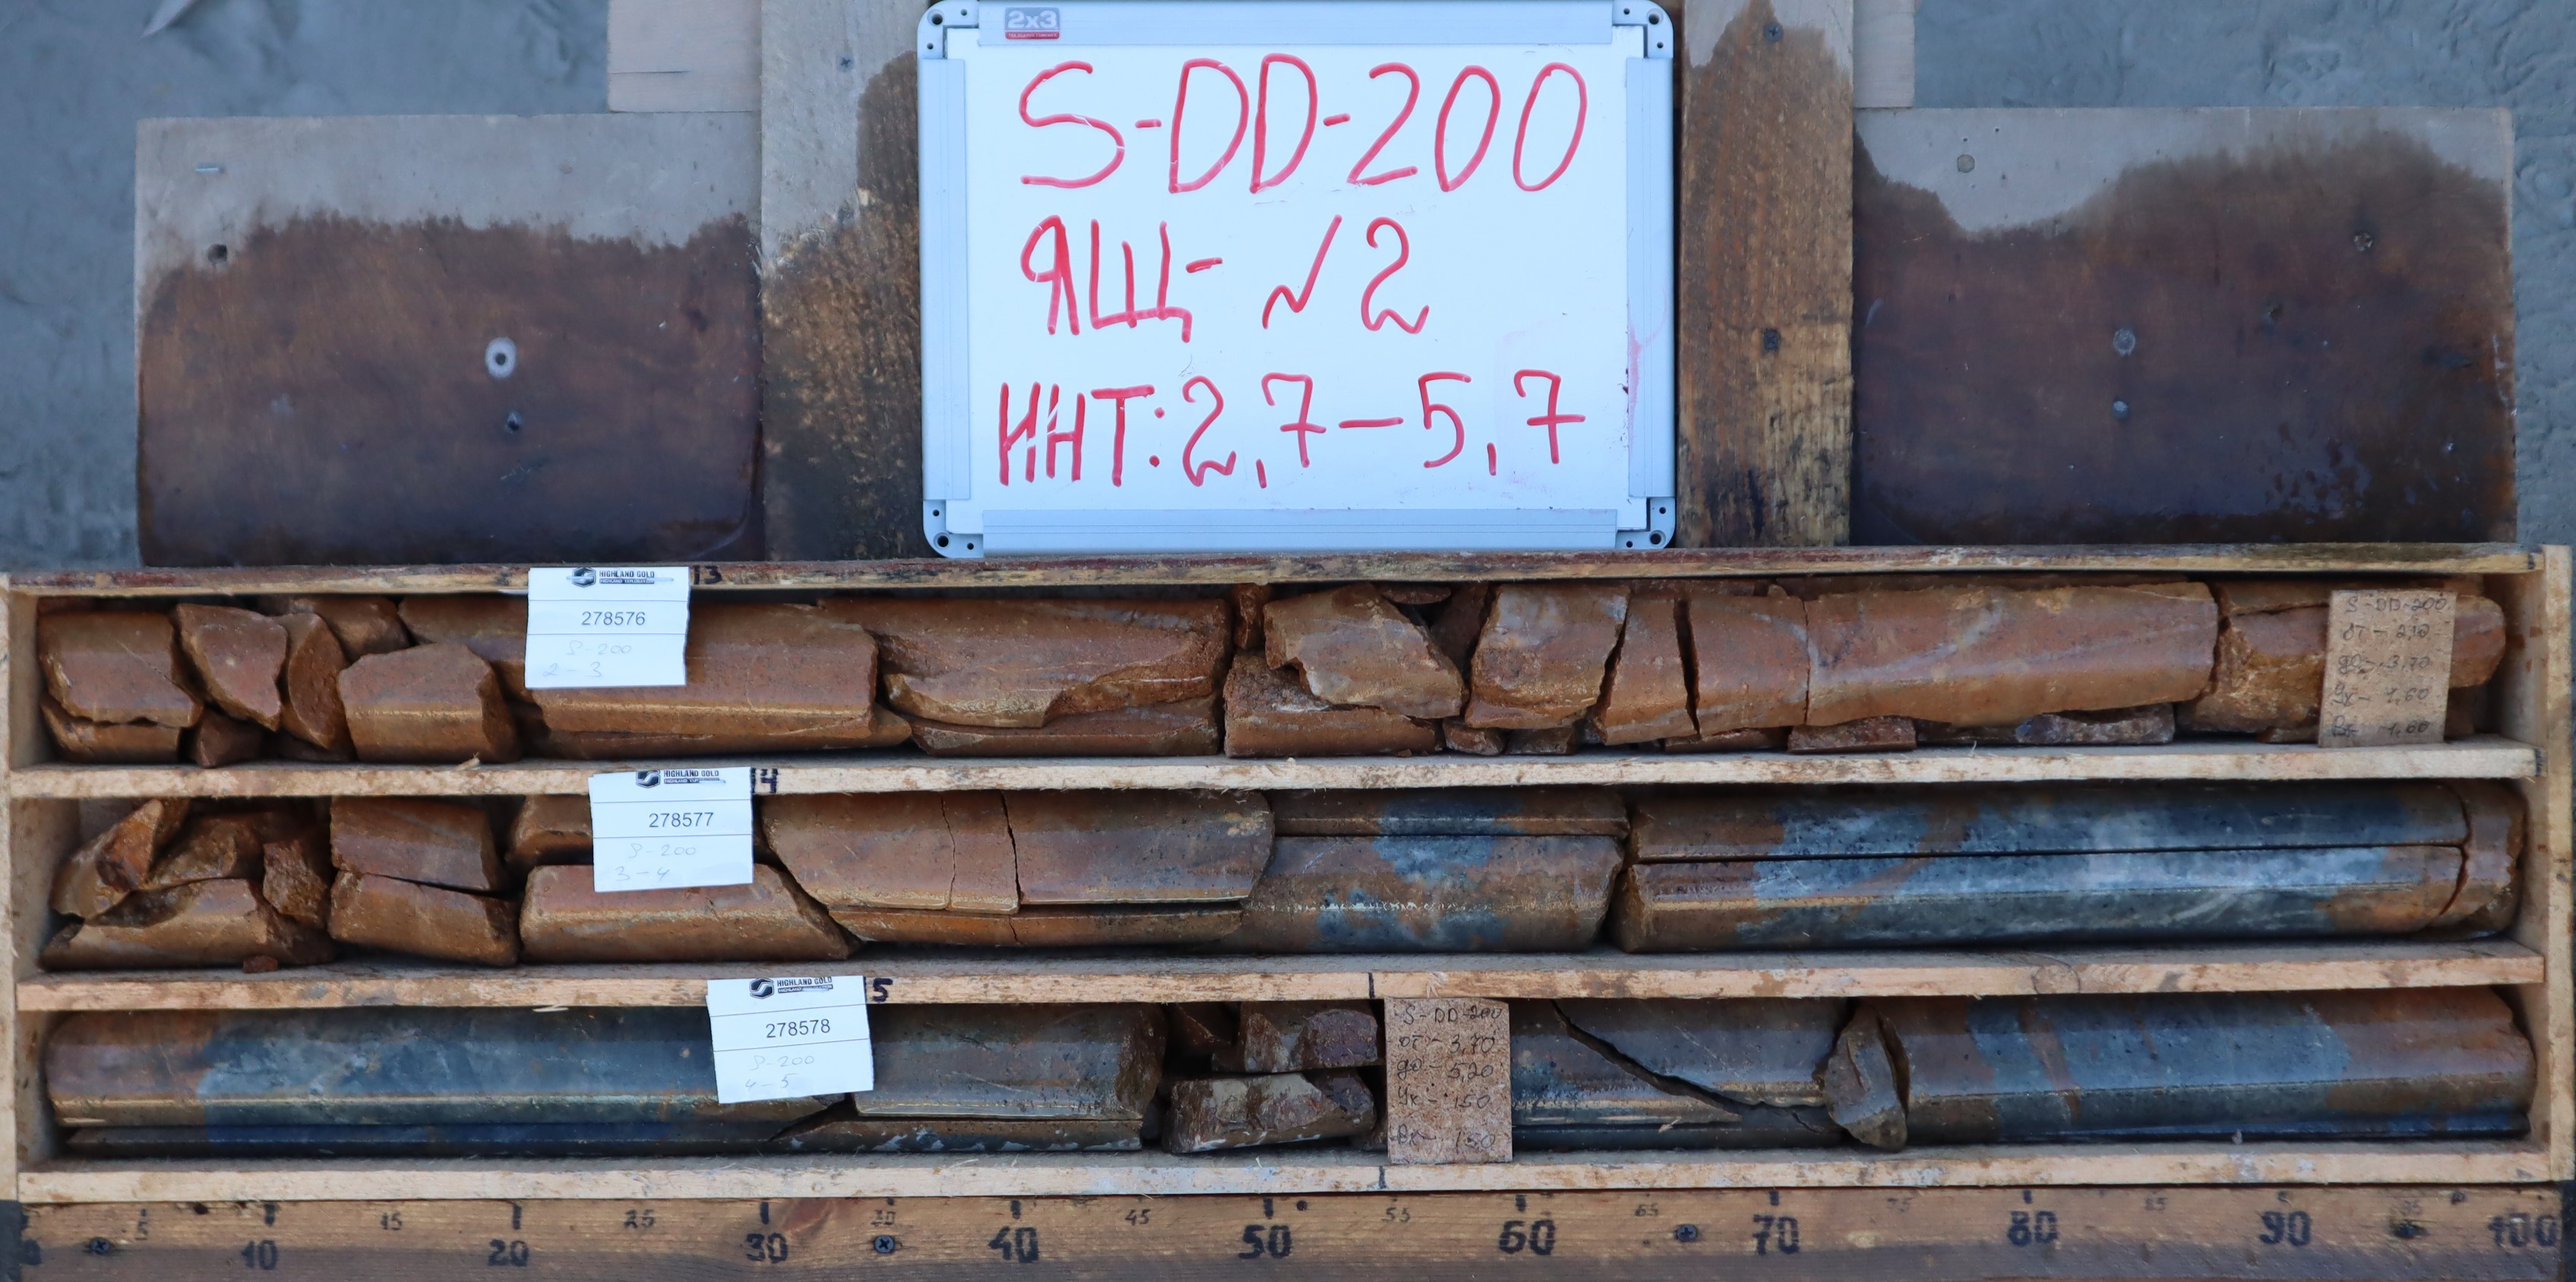 2x3
S-DD-200
ЯЩ- №2
ИНТ: 2,7-5,7
HIGHLAND GOLD
278576
S-200
2-3
13
S-DD-200
от - 2,10
до - 3,70
Ук - 1,60
Вк - 1,60
HIGHLAND GOLD
278577
S-200
3-4
14
HIGHLAND GOLD
278578
S-200
4-5
5
S-DD-200
от - 3,70
до - 5,20
Ук - 1,50
Вк - 1,50
5 10 15 20 25 30 40 45 50 55 60 65 70 75 80 85 90 95 100